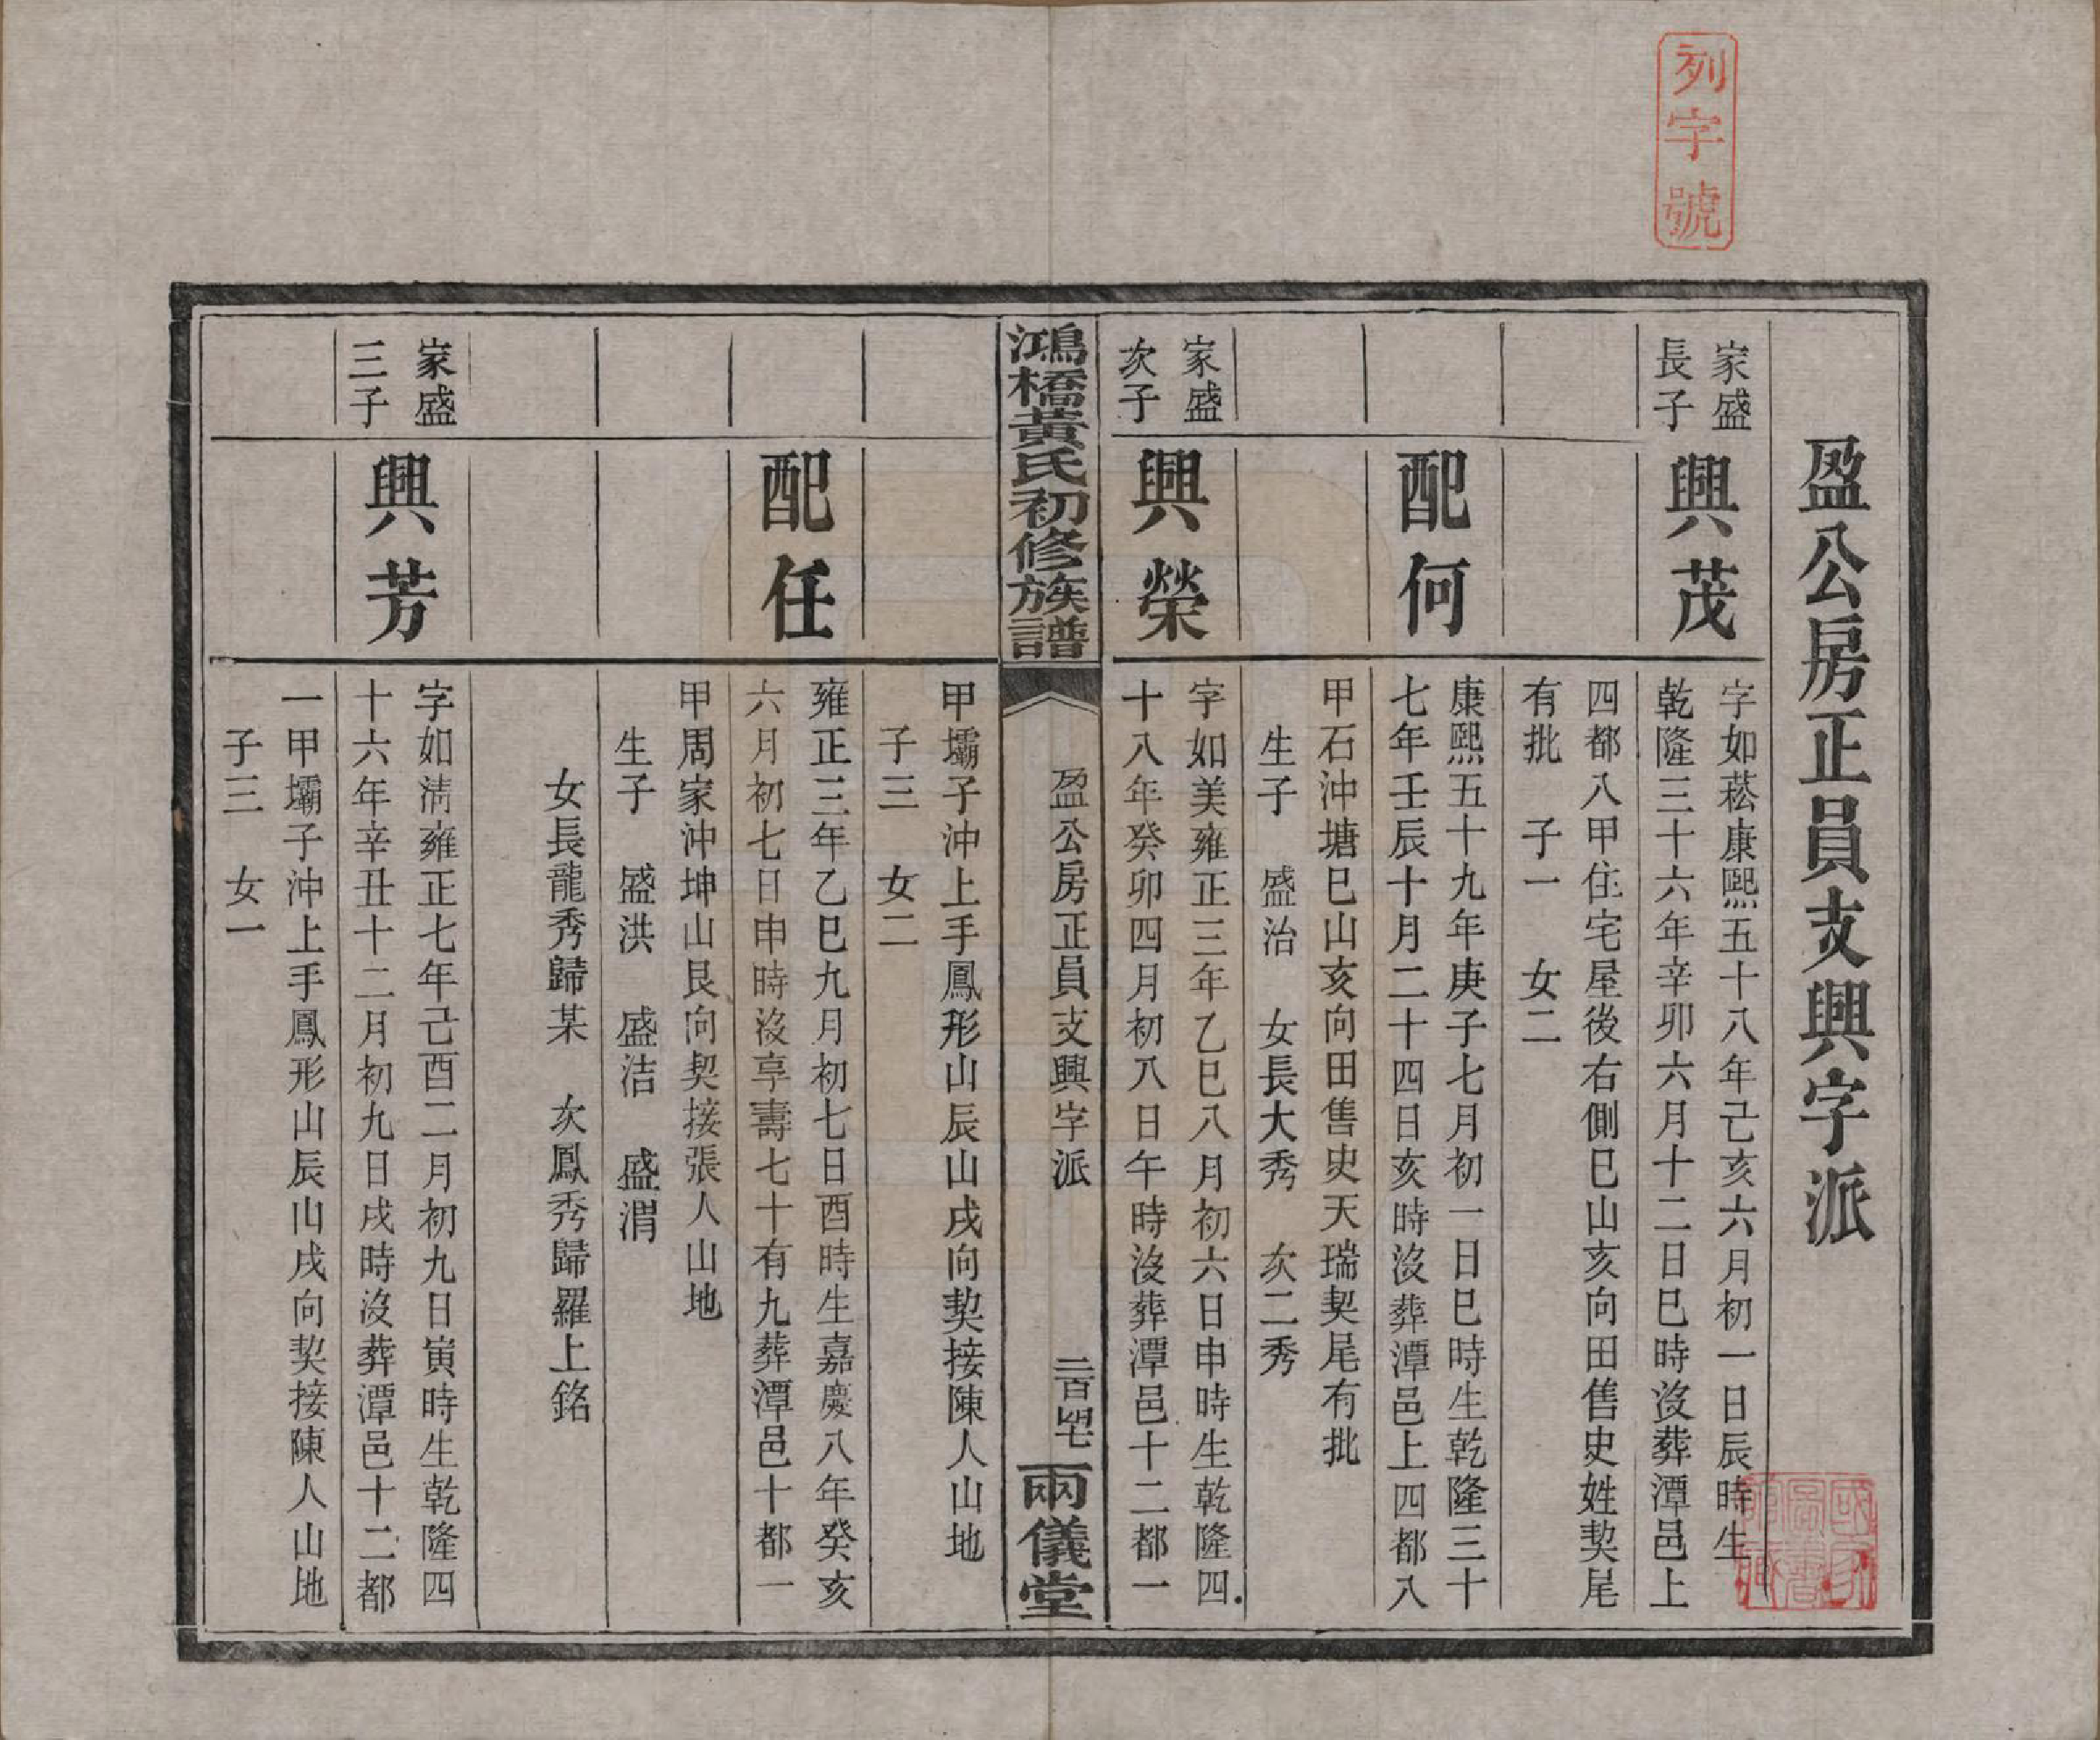 列字號
盈公房正員支興字派
家盛
長子
興茂
字如菘康熙五十八年己亥六月初一日辰時生
乾隆三十六年辛卯六月十二日巳時沒葬潭邑上
四都八甲住宅屋後右側巳山亥向田售史姓契尾
有批　子一　女二
配何
康熙五十九年庚子七月初一日巳時生乾隆三十
七年壬辰十月二十四日亥時沒葬潭邑上四都八
甲石沖塘巳山亥向田售史天瑞契尾有批
生子　盛治　女長大秀　次二秀
家盛
次子
興榮
字如美雍正三年乙巳八月初六日申時生乾隆四
十八年癸卯四月初八日午時沒葬潭邑十二都一
鴻橋黃氏初修族譜
盈公房正員支興字派
二百四七
兩儀堂
甲壩子沖上手鳳形山辰山戌向契接陳人山地
子三　女二
配任
雍正三年乙巳九月初七日酉時生嘉慶八年癸亥
六月初七日申時沒享壽七十有九葬潭邑十都一
甲周家沖坤山艮向契接張人山地
生子　盛洪　盛洁　盛渭
女長龍秀歸某　次鳳秀歸羅上銘
家盛
三子
興芳
字如清雍正七年己酉二月初九日寅時生乾隆四
十六年辛丑十二月初九日戌時沒葬潭邑十二都
一甲壩子沖上手鳳形山辰山戌向契接陳人山地
子三　女一